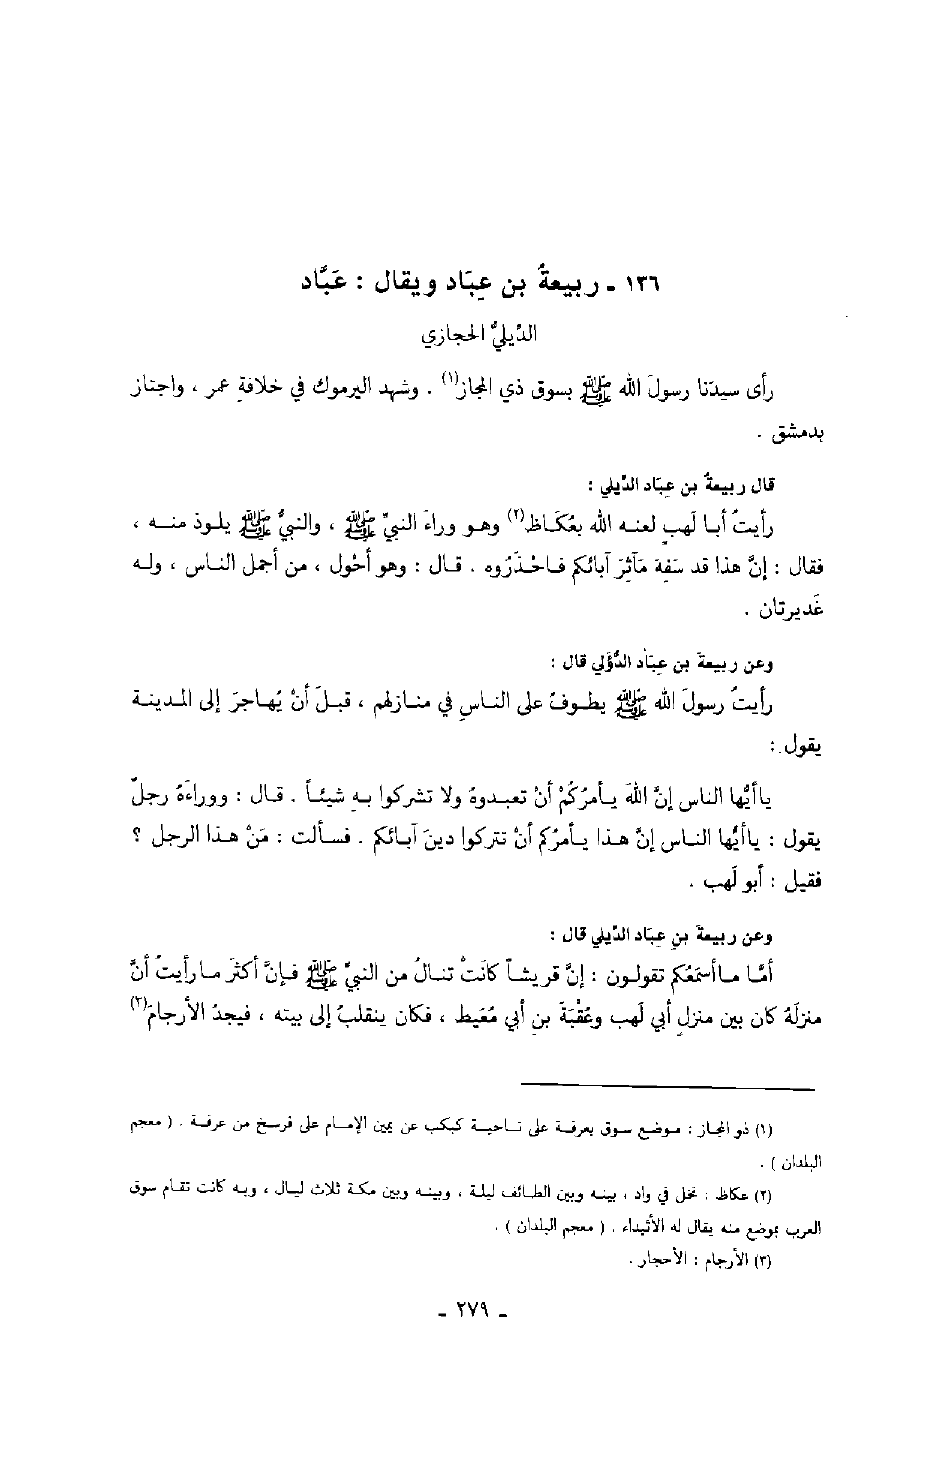 ١٣٦ ـ ربيعةُ بن عِبَاد ويقال : عَبَّاد
الدِّيليُّ الحجازي
رأى سيدَنا رسولَ الله ﷺ بسوق ذي المجاز(١) . وشهد اليرموك في خلافةِ عمر ، واجتاز
بدمشق .
قال ربيعةُ بن عِبَاد الدِّيلي :
رأيتُ أبا لَهبٍ لعنه الله بعُكَاظ(٢) وهو وراءَ النبيِّ ﷺ ، والنبيُّ ﷺ يلوذ منه ،
فقال : إنَّ هذا قد سَفِهَ مَآثِرَ آبائكم فاحْذَرُوه . قال : وهو أحْول ، من أجمل الناس ، وله
غَديرتان .
وعن ربيعةَ بن عِبَاد الدُّؤَلي قال :
رأيتُ رسولَ الله ﷺ يطوفُ على الناسِ في منازلهم ، قبلَ أنْ يُهاجرَ إلى المدينة
يقول :
ياأيُّها الناس إنَّ اللهَ يأمرُكُمْ أنْ تعبدوهُ ولا تشركوا بهِ شيئاً . قال : ووراءَهُ رجلٌ
يقول : ياأيُّها الناس إنَّ هذا يأمرُكم أنْ تتركوا دينَ آبائكم . فسألت : مَنْ هذا الرجل ؟
فقيل : أبو لَهب .
وعن ربيعةَ بنِ عِبَاد الدِّيلي قال :
أمَّا ماأسمَعُكم تقولون : إنَّ قريشاً كانَتْ تنالُ من النبيِّ ﷺ فإنَّ أكثرَ مارأيتُ أنَّ
منزلَهُ كان بين منزلِ أبي لَهب وعُقْبَةَ بنِ أبي مُعَيط ، فكان ينقلبُ إلى بيته ، فيجدُ الأرجامَ(٣)
(١) ذو المجاز : موضع سوق بعرفة على ناحية كبكب عن يمين الإمام على فرسخ من عرفة . ( معجم
البلدان ) .
(٢) عكاظ : نخل في واد ، بينه وبين الطائف ليلة ، وبينه وبين مكة ثلاث ليال ، وبه كانت تقام سوق
العرب بموضع منه يقال له الأثيداء . ( معجم البلدان ) .
(٣) الأرجام : الأحجار .
ـ ٢٧٩ ـ